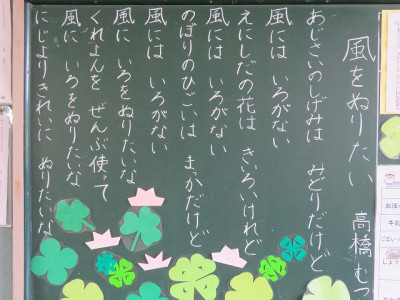 風をぬりたい
高橋 むつ
あじさいのしげみは みどりだけど
風には いろがない
えにしだの花は きいろいけれど
風には いろがない
のぼりのひごいは まっかだけど
風には いろがない
風に いろをぬりたいな
くれよんを ぜんぶ使って
風に いろをぬりたいな
にじよりきれいに ぬりたいな
牛乳